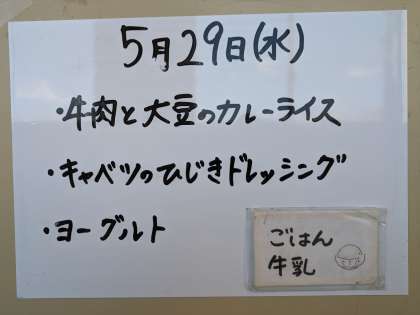 5月29日(水)
・牛肉と大豆のカレーライス
・キャベツのひじきドレッシング
・ヨーグルト
ごはん
牛乳